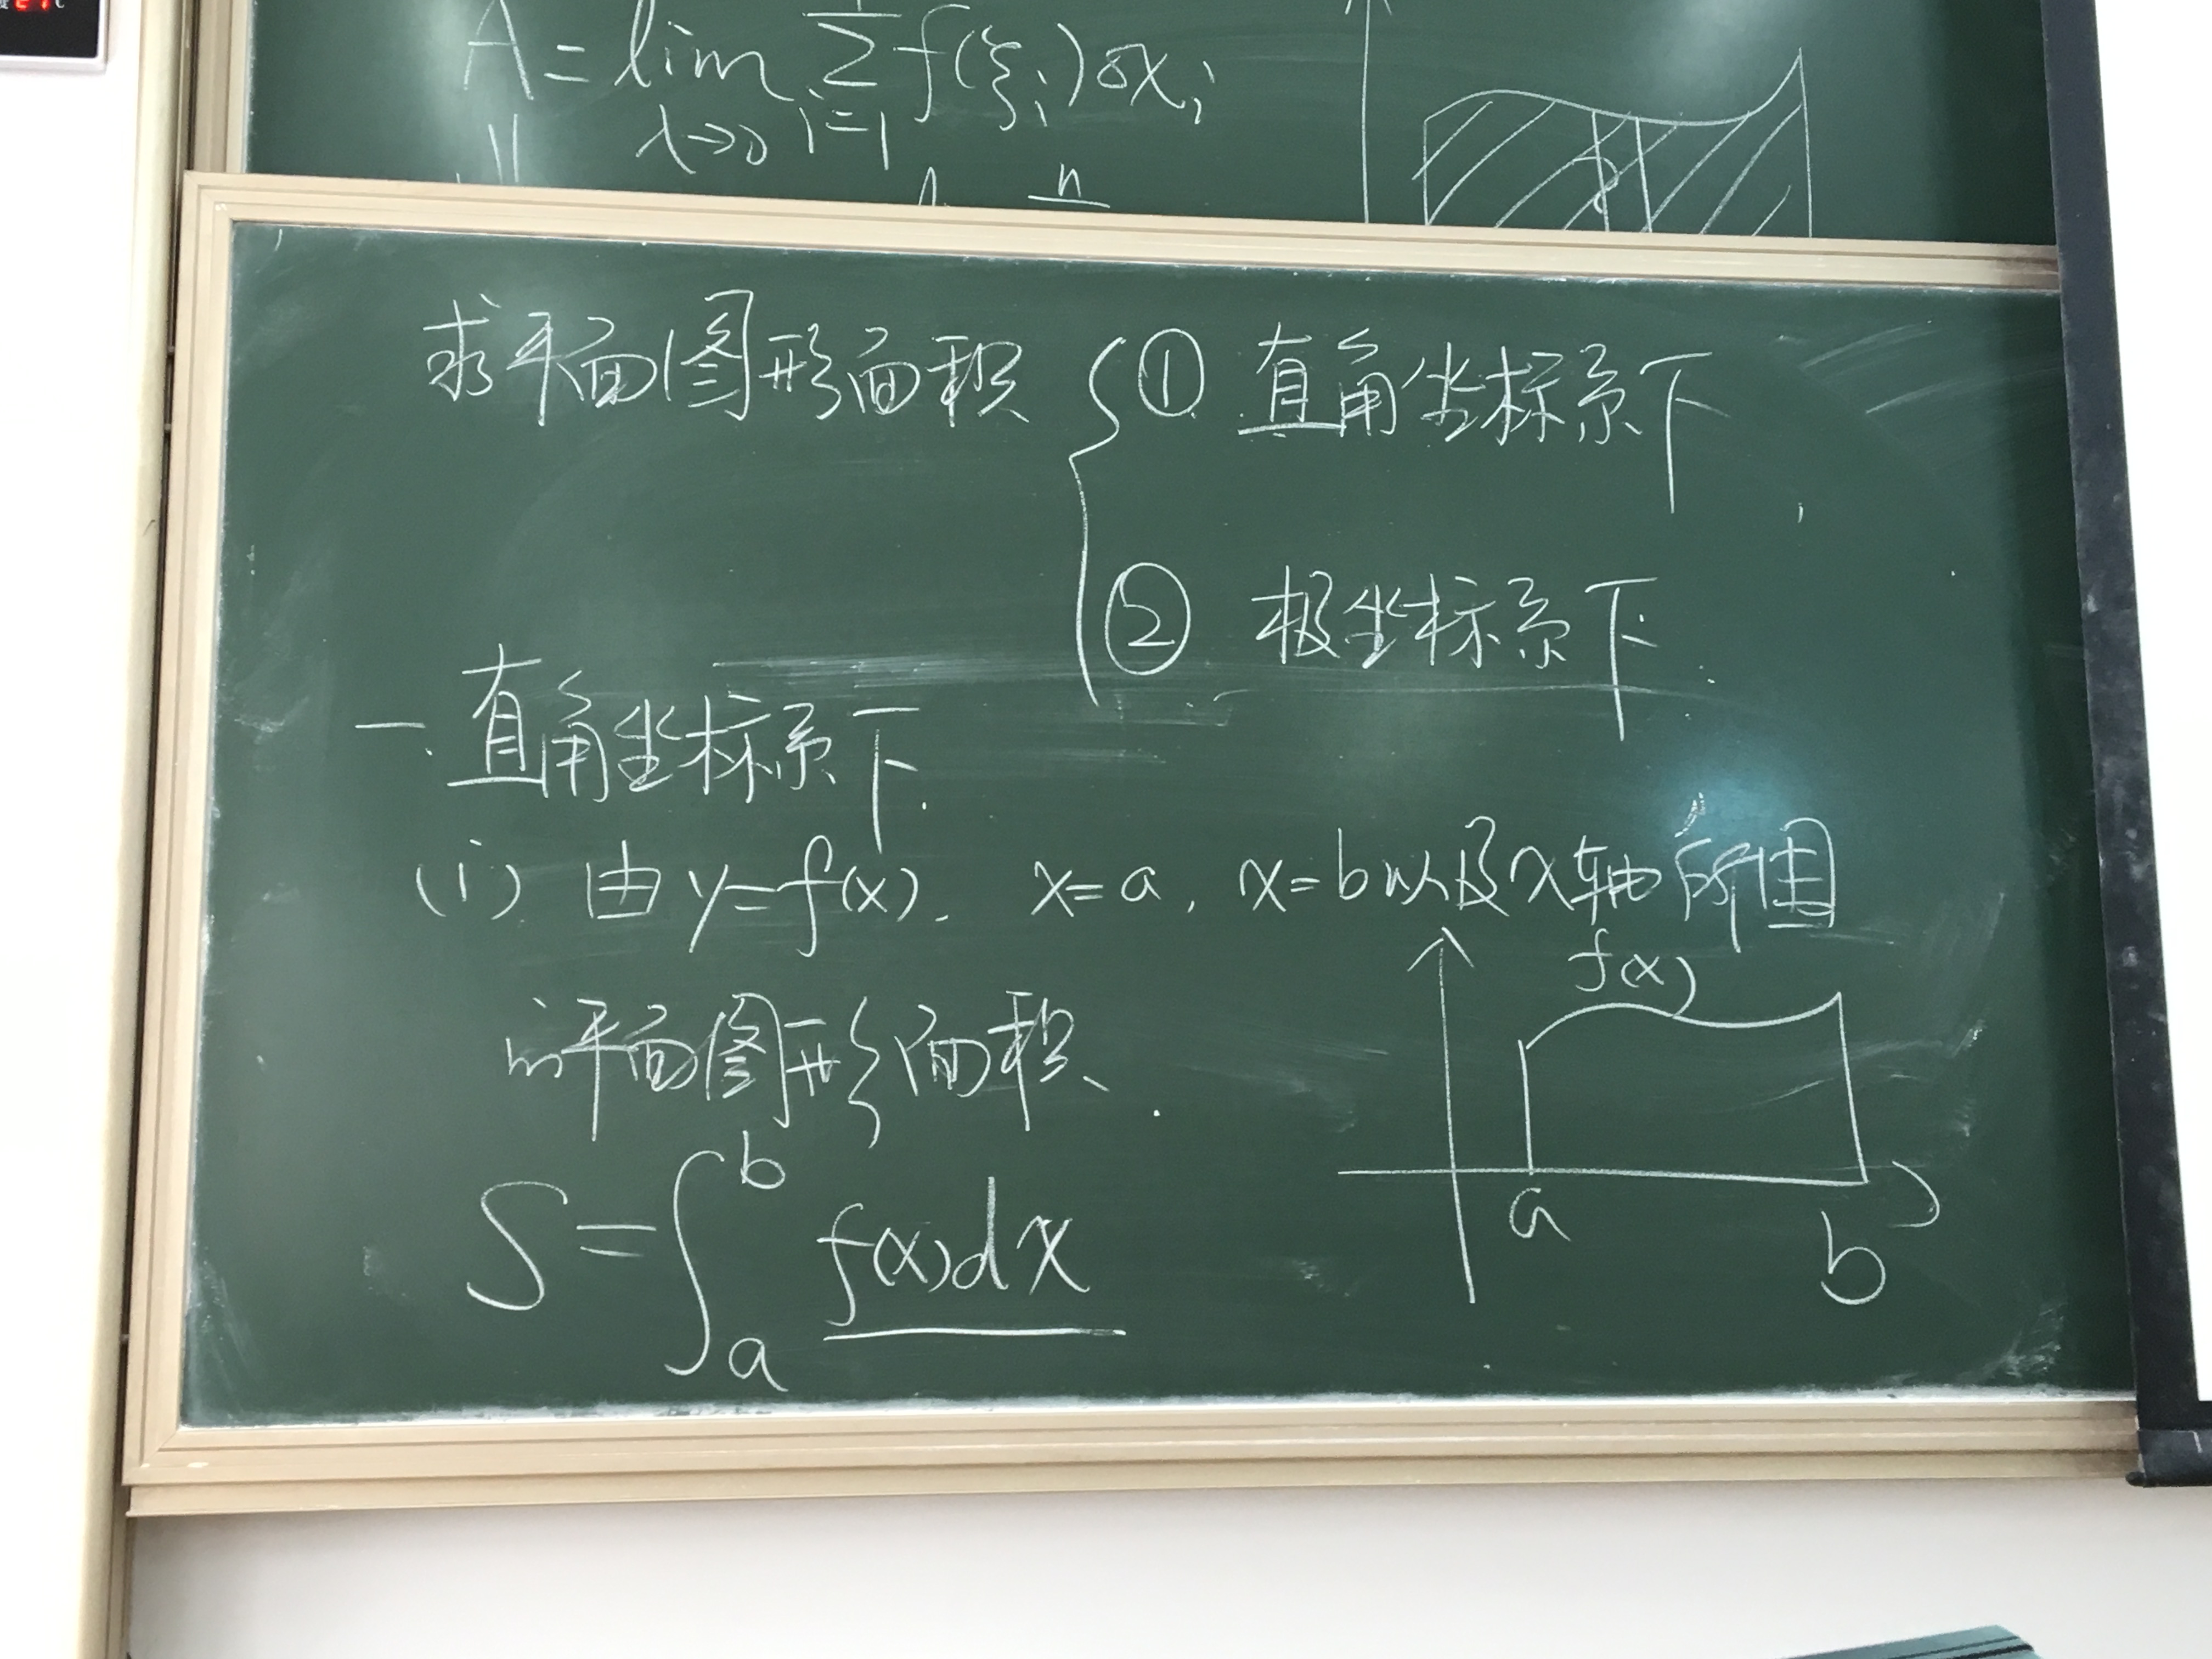 A = lim Σ f(ξi)δxi
λ→0 i=1
n
求平面图形面积 { ① 直角坐标系下
② 极坐标系下.
一. 直角坐标系下.
(i) 由 y=f(x). x=a, x=b以及x轴所围
的平面图形面积.
f(x)
S=∫_a^b f(x)dx
a
b